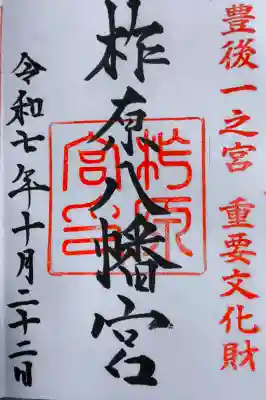 豊後一之宮 重要文化財
柞原八幡宮
令和七年十月二十二日